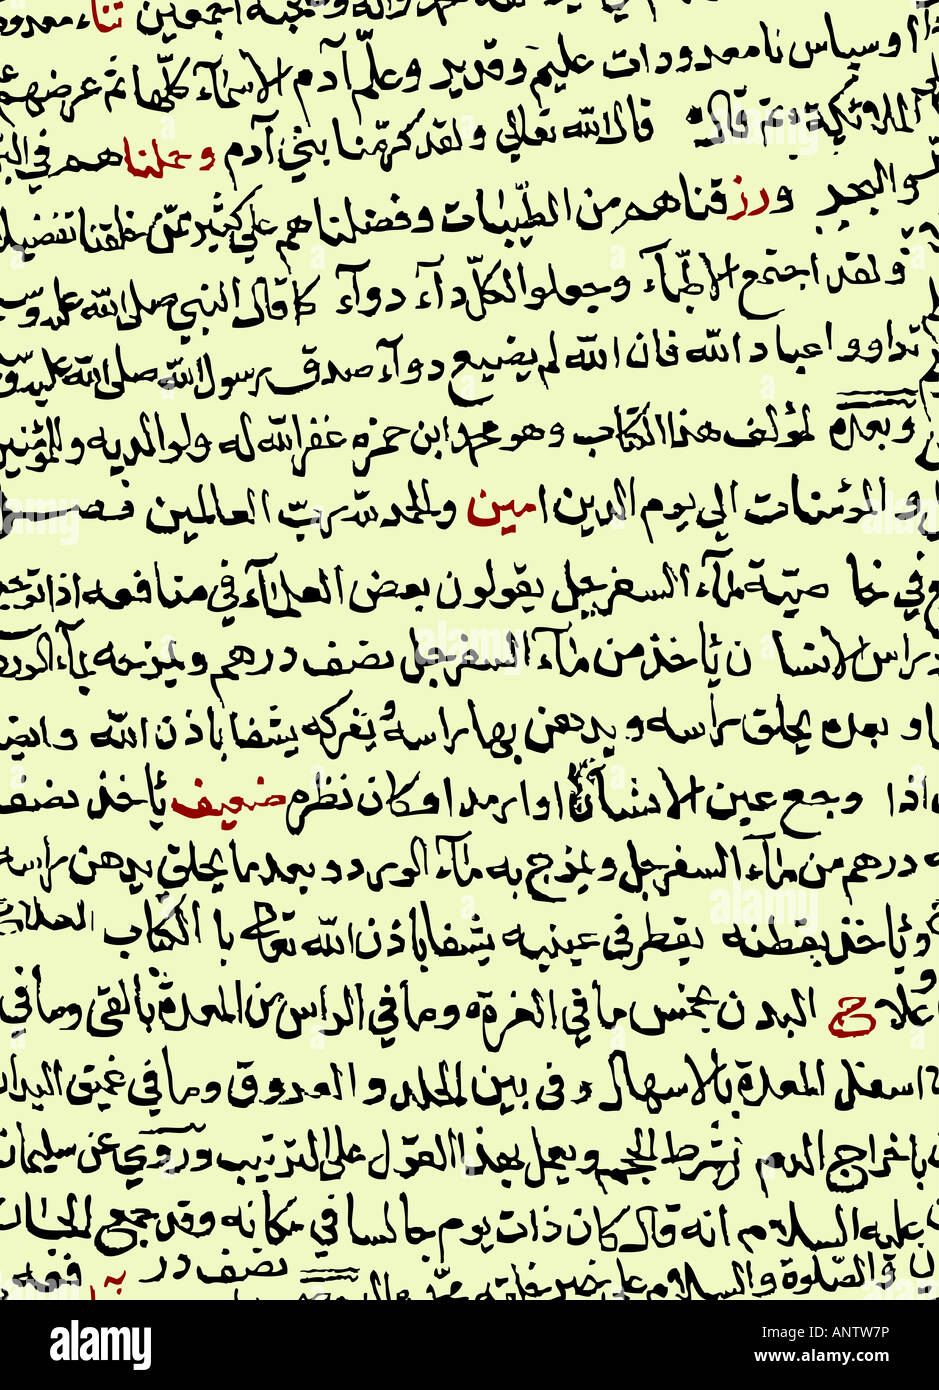 اجمعين ثناء
اوسپاس نا معدودات عليم وقدير وعلّم آدم الاسمآء كلّها ثم عرضهم
قال الله تعالي ولقد كرّمنا بني آدم وحملناهم في البر
والبحر ورزقناهم من الطّيبات وفضلناهم علي كثير ممّن خلقنا تفضيلا
ولقد اجتمع الاطبّآء وجعلوا لكلّ دآء دوآء كما قال النبي صلي الله عليه وسلم
تداووا عباد الله فان الله لم يضيع دوآء صدق رسول الله صلي الله عليه وسلم
وبعده لمؤلف هذا الكتاب وهو محمد ابن حمزه غفر الله له ولوالديه وللمؤمنين
والمؤمنات الي يوم الدين امين والحمد لله ربّ العالمين فصل
في خاصيّة مآء السفرجل يقولون بعض العلمآء في منافعه اذا
راس الانسان يأخذ من مآء السفرجل نصف درهم ويمزجه بمآء الورد
وبعده يحلق راسه ويدهن بها راسه ويفركه يشفا باذن الله وايضا
اذا وجع عين الانسان اوارمدا وكان نظره ضعيف يأخذ نصف
درهم من مآء السفرجل ويمزج به مآء الورد وبعد ما يحلق يدهن راسه
وياخذ بقطنه يقطر في عينيه يشفا باذن الله تعالي با الكتاب
علاج البدن بخمس ما في الغرة وما في الراس من المعدة بالقي وما في
اسفل المعدة بالاسهال وفي بين الجلد والعروق وما في عميق البدن
باخراج الدم نشرط الحجم ويعمل بهذا القول علي الترتيب وروي عن سليمان
عليه السلام انه قال كان ذات يوم جالسا في مكانه وقد جمع الجان
والصّلوة والسلام علي خير نصف در